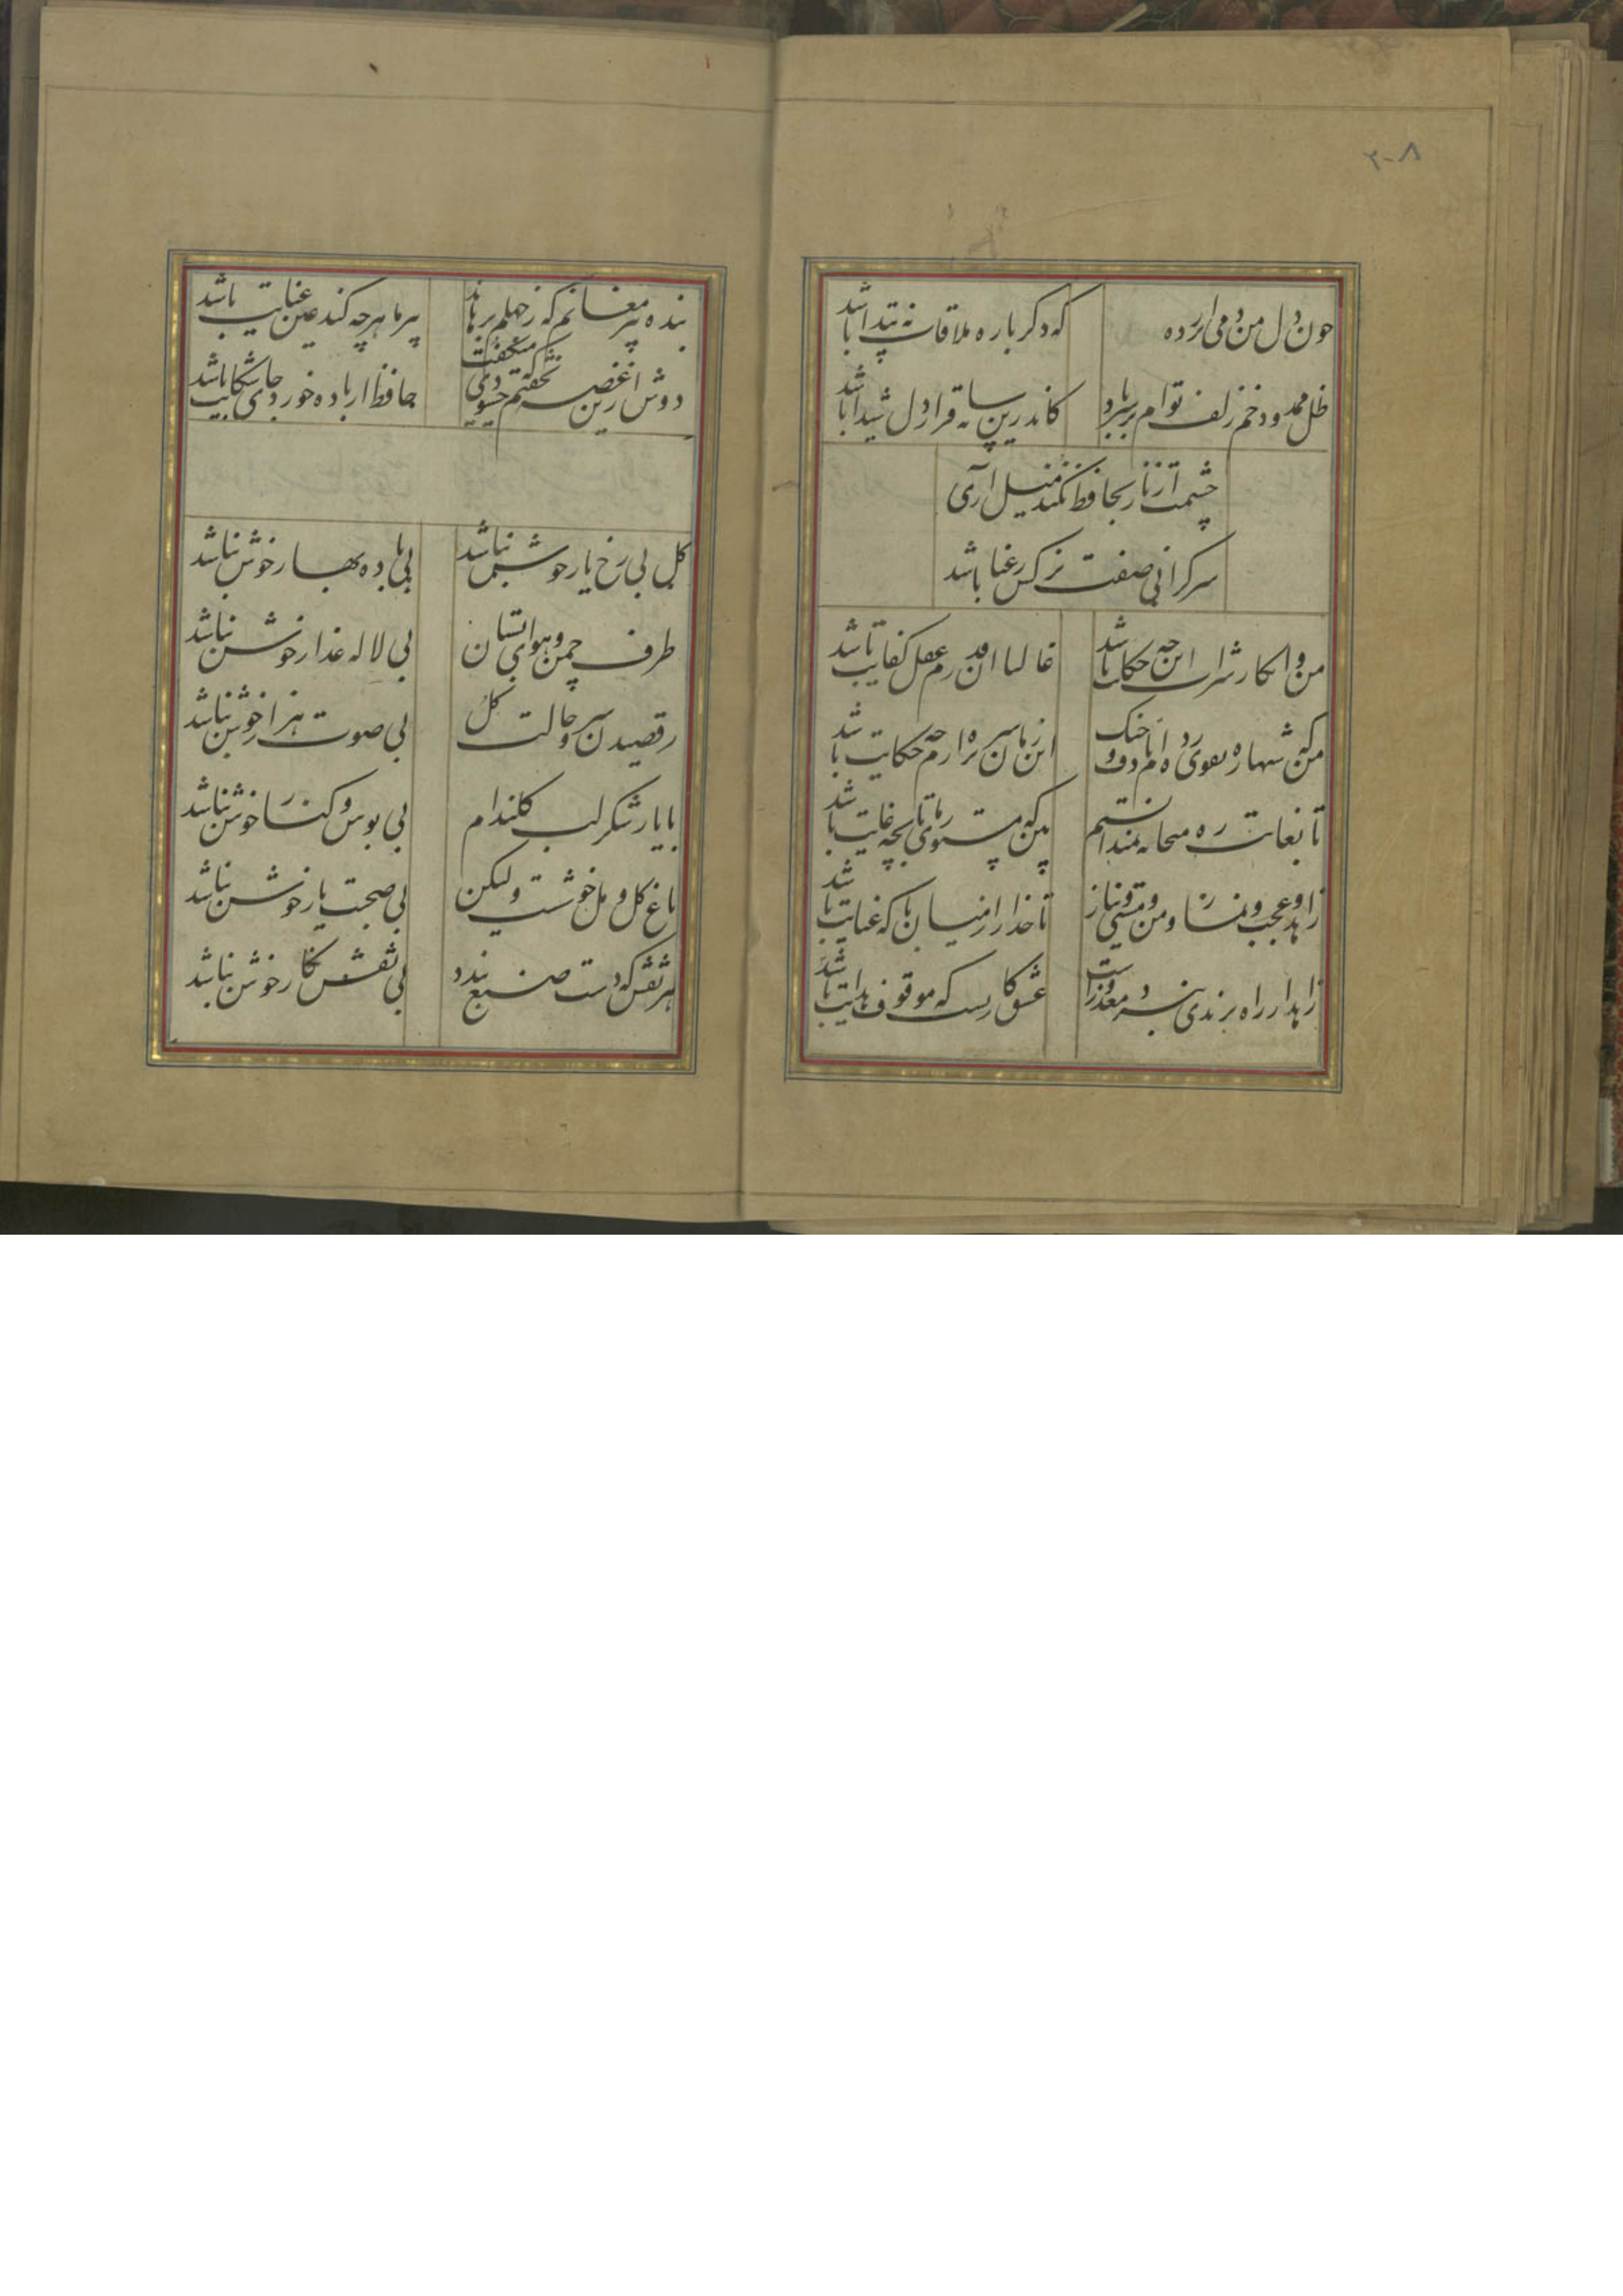 ۲۰۸
چون دل من دمی از پرده
که دگرباره ملاقات نه پیدا باشد
ظل ممدود خم زلف توام بر سر باد
کاندرین سایه قرار دل شیدا باشد
چشمت از ناز بحافظ نکند میل آری
سرگرانی صفت نرگس رعنا باشد
من و انکار شراب این چه حکایت باشد
غالبا این قدرم عقل کفایت باشد
من که شبها ره تقوی زده‌ام با دف و چنگ
این زمان سر بره آرم چه حکایت باشد
تا بغایت ره میخانه نمیدانستم
که مستوری ما تا بچه غایت باشد
زاهد و عجب و نماز و من و مستی و نیاز
تا خدا را ز میان با که عنایت باشد
زاهد ار راه برندی نبرد معذورست
عشق کاریست که موقوف هدایت باشد
بنده پیر مغانم که ز جهلم برهاند
پیر ما هر چه کند عین عنایت باشد
دوش ازین غصه نخفتم که حکیمی میگفت
حافظ ار باده خورد جای شکایت باشد
گل بی رخ یار خوش نباشد
بی باده بهار خوش نباشد
طرف چمن و هوای بستان
بی لاله عذار خوش نباشد
رقصیدن سرو و حالت گل
بی صوت هزار خوش نباشد
با یار شکر لب گلندام
بی بوس و کنار خوش نباشد
باغ گل و مل خوشست ولیکن
بی صحبت یار خوش نباشد
هر نقش که دست صنع بندد
بی نقش نگار خوش نباشد